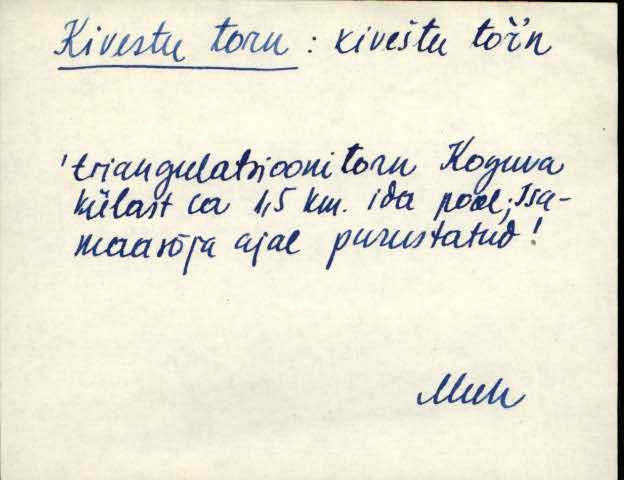 Kivestu torn : kivештu tor̆'n
'triangulatsioonitorn Koguva
külast ca 1,5 km. ida pool; Isa-
maasõja ajal purustatud'
Muh